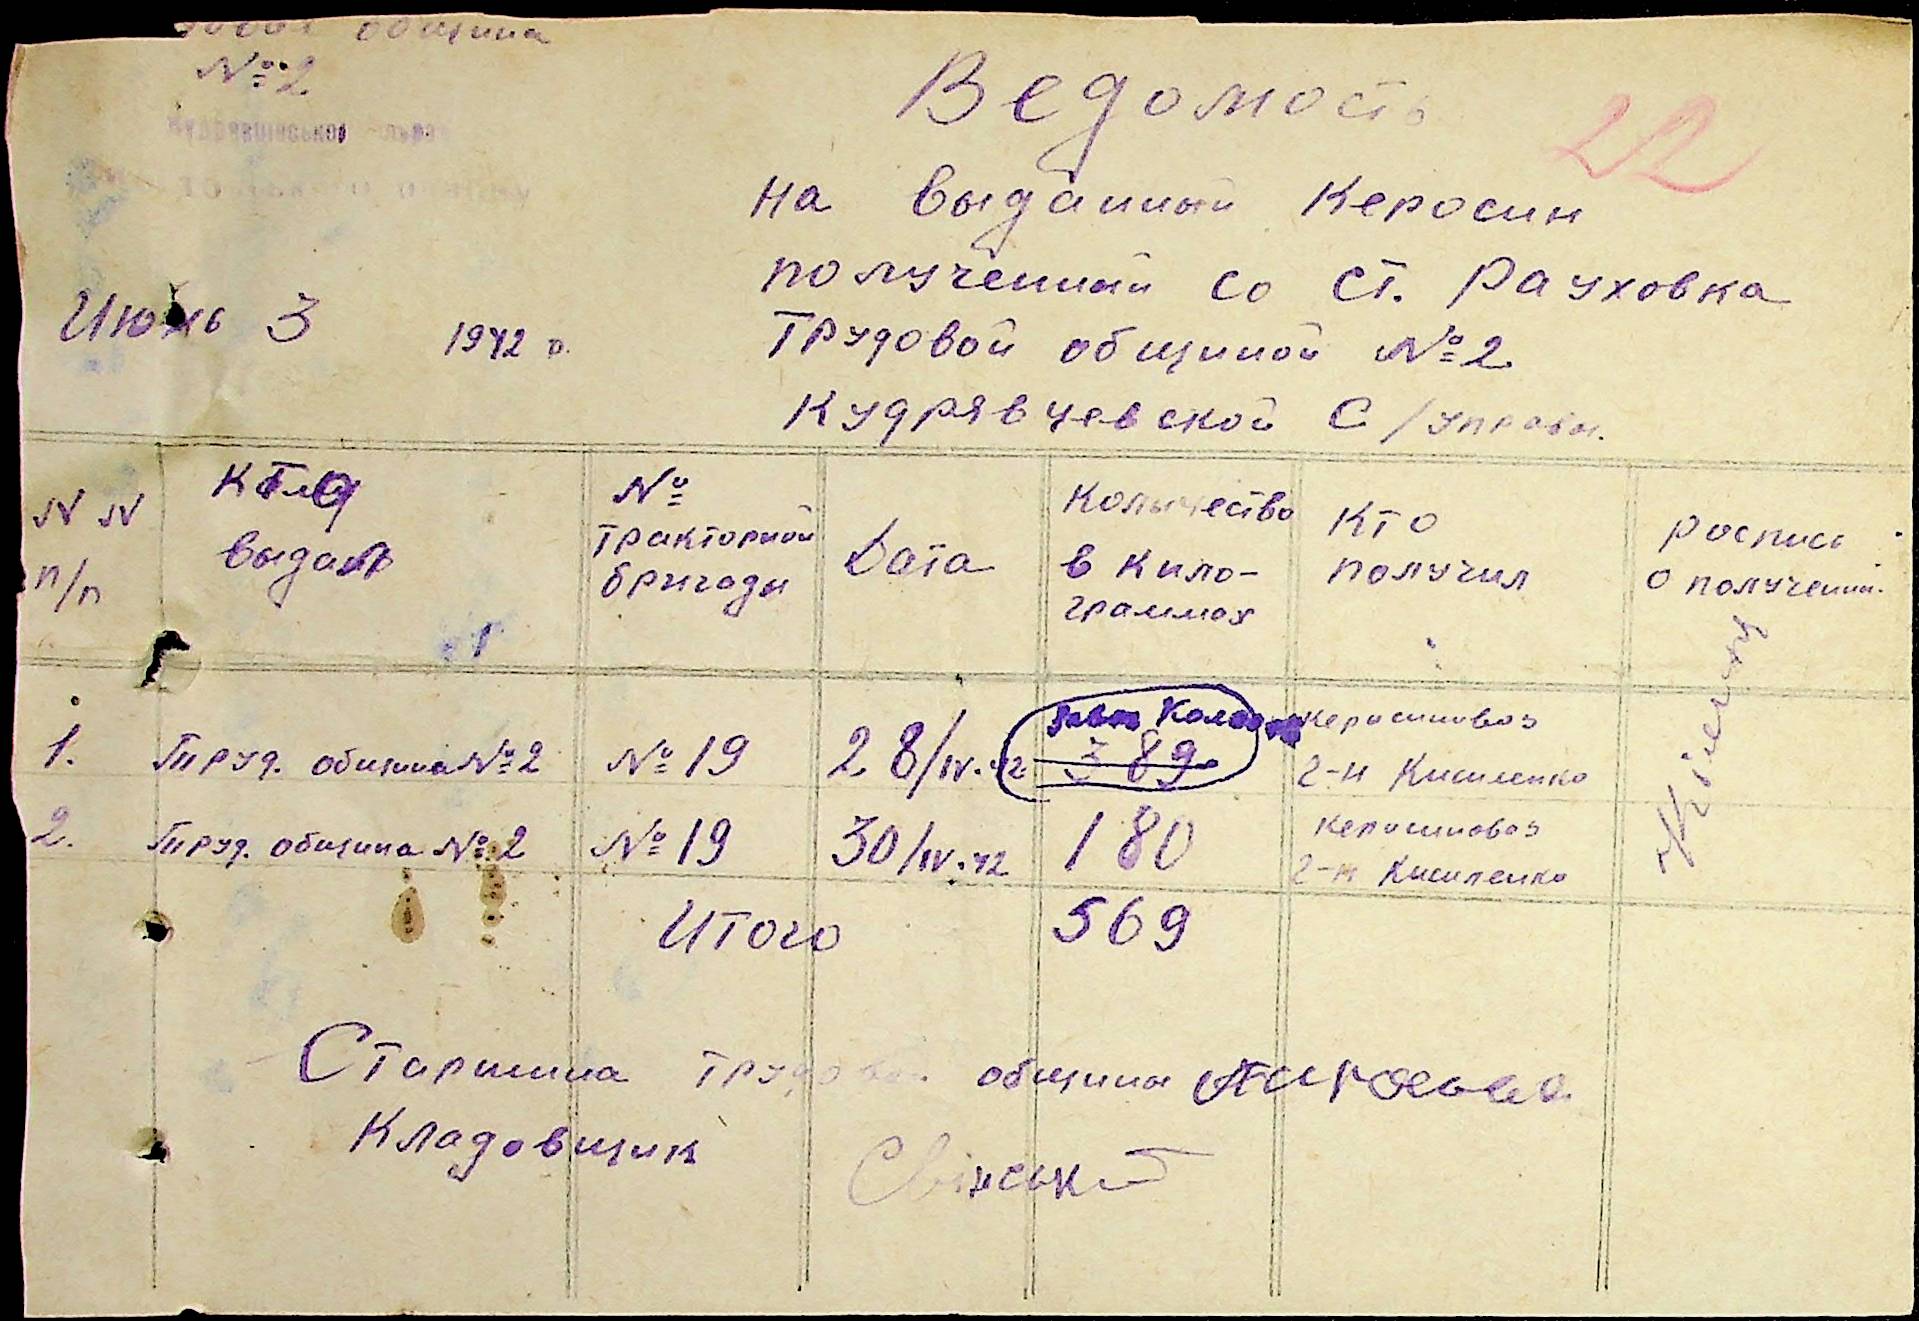 община
№ 2
Ведомость
22
на выданный Керосин
полученный со ст. Рауховка
Июнь 3 1942 г.
Трудовой общиной № 2
Кудрявцевской С/управы.
N N п/п
Кто выдал
№ тракторной бригады
Дата
Количество в Кило-граммах
Кто получил
роспись о получении.
1. Труд. община № 2 № 19 28/IV-42 389 Керосиновоз
г-н Кисиленко
2. Труд. община № 2 № 19 30/IV-42 180 Керосиновоз
г-н Кисиленко
Итого 569
Старшина трудовой общины
Кладовщик Свінський